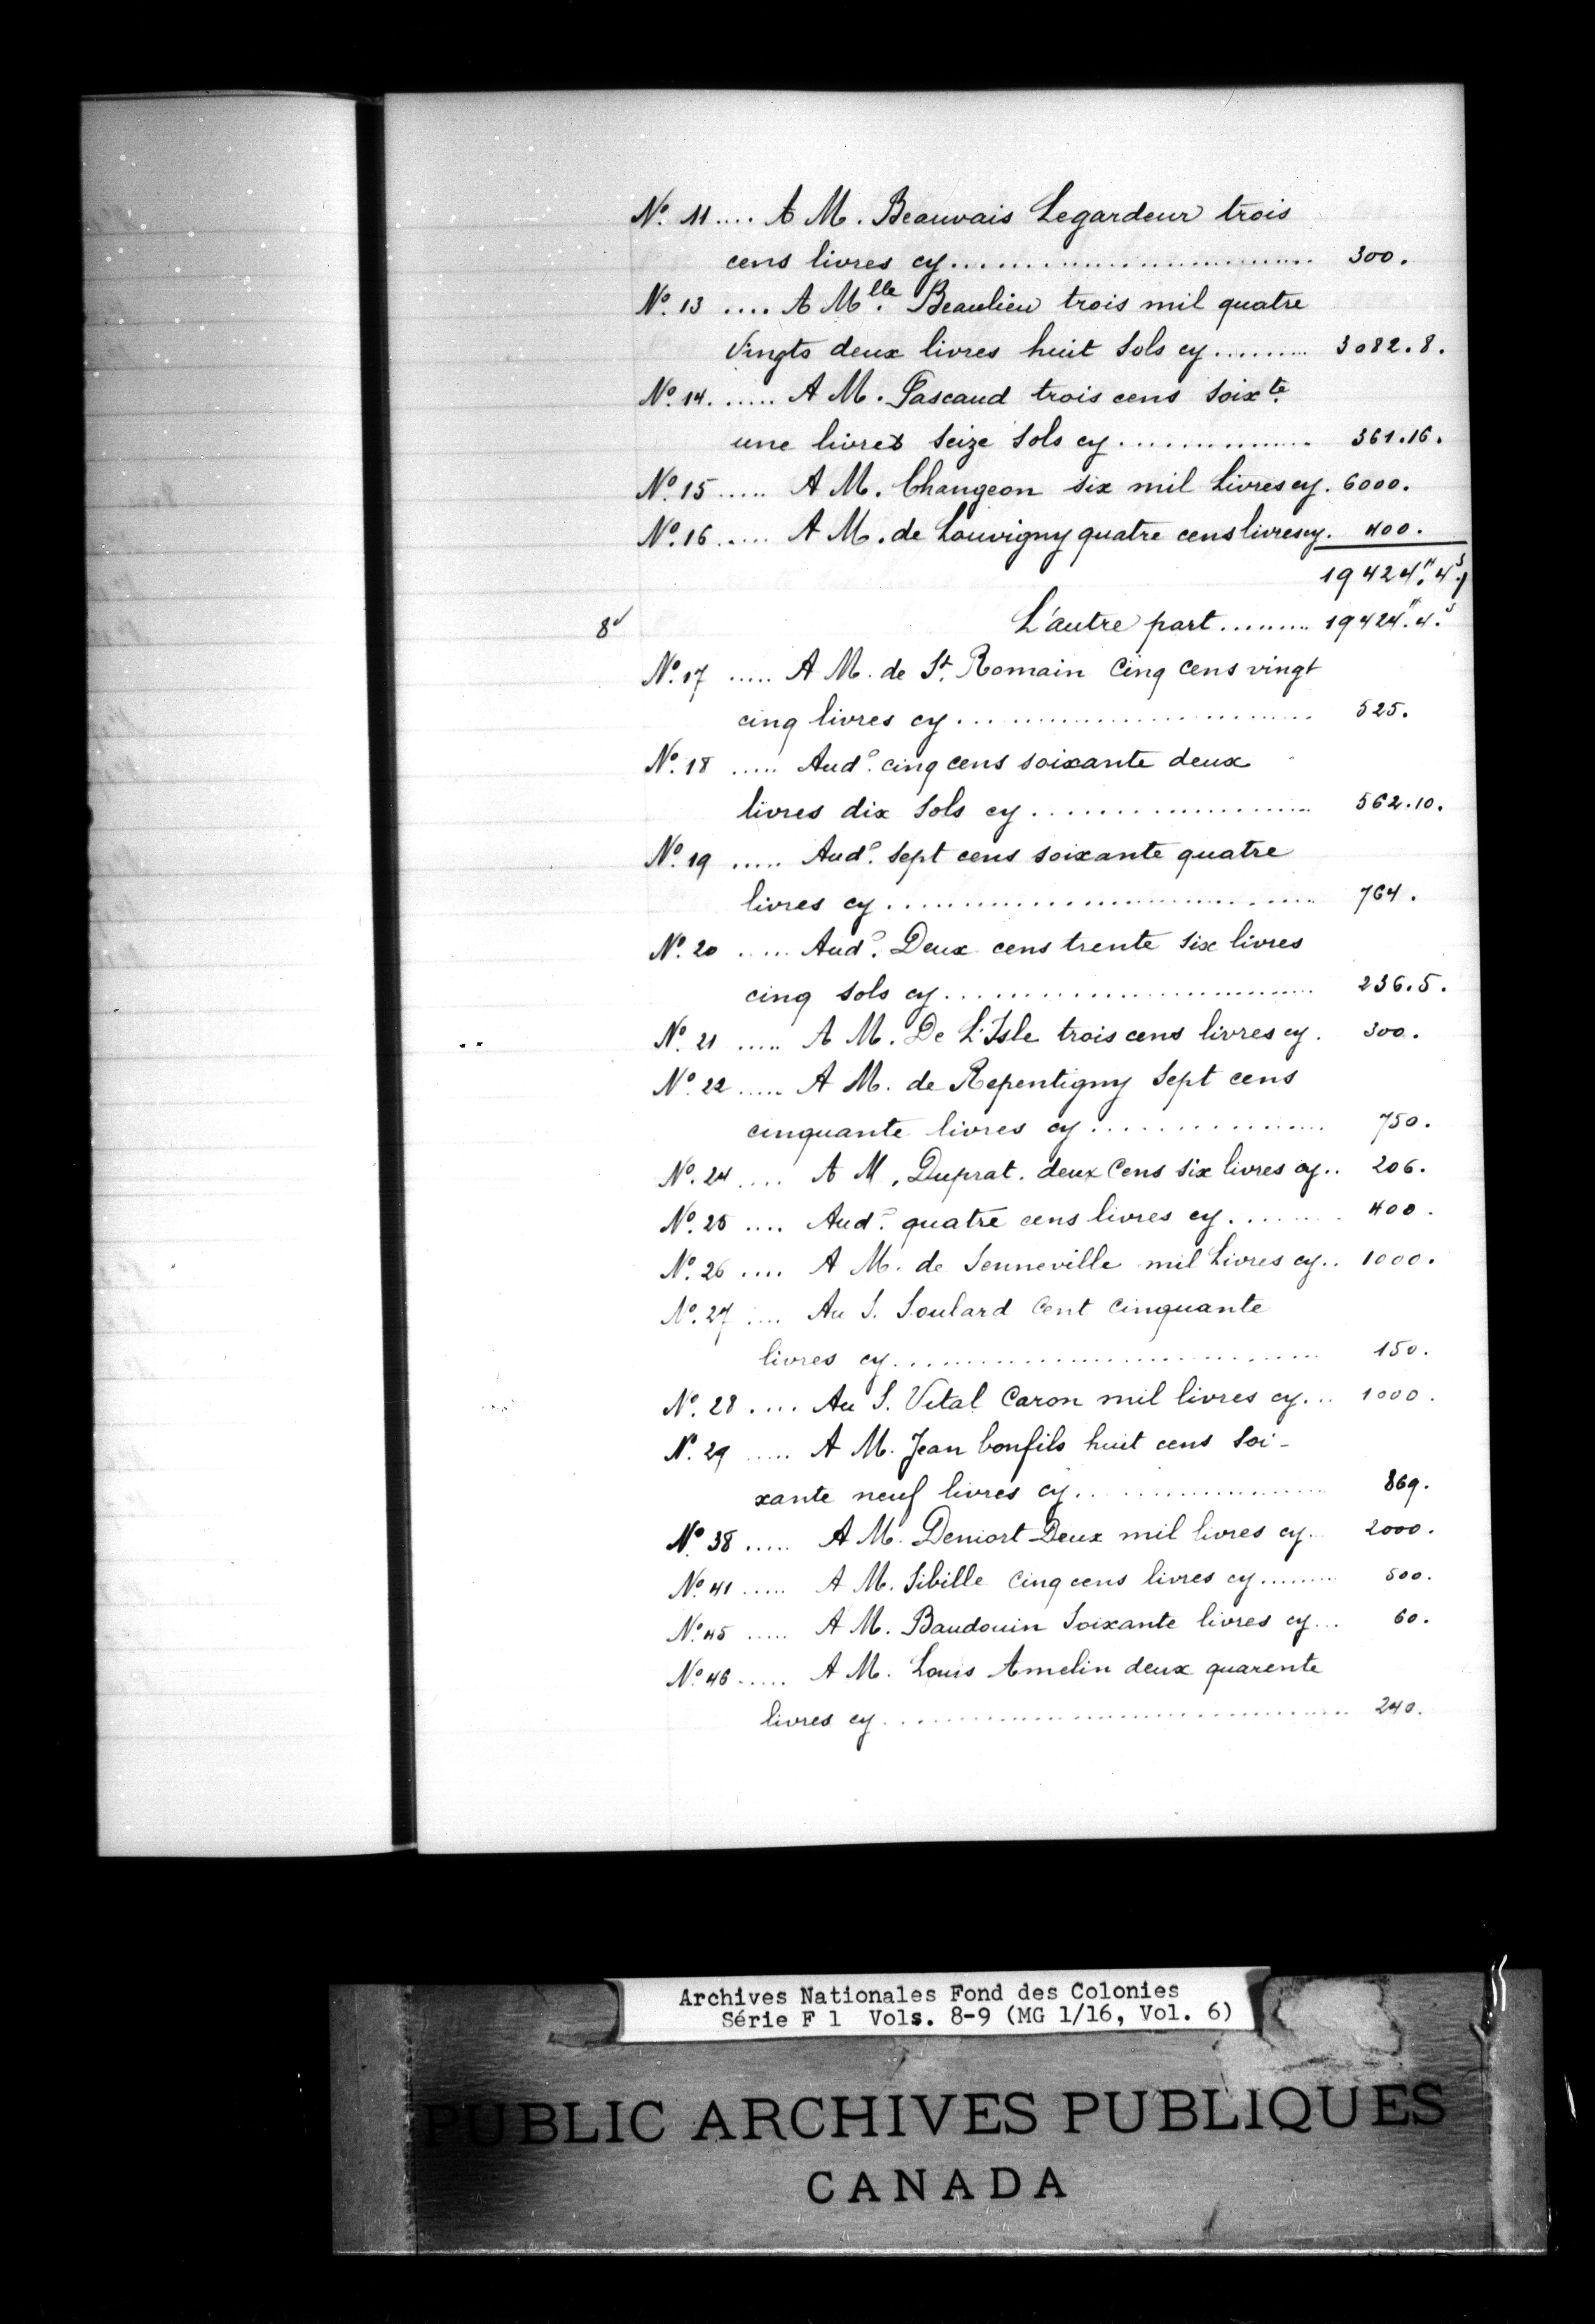 Nº. 11 .... A M. Beauvais Legardeur trois
cens livres cy .......................... 300.
Nº. 13 .... A Mlle. Beaulieu trois mil quatre
Vingts deux livres huit Sols cy ......... 3082.8.
Nº. 14. ..... A M. Pascaud trois cens Soixte.
une livres Seize Sols cy ............... 361.16.
Nº. 15 ..... A M. Changeon six mil Livres cy. 6000.
Nº. 16 ..... A M. de Louvigny quatre cens livres cy. 400.
19424".4s.
L'autre part ......... 19424".4.s
Nº. 17 ..... A M. de St. Romain Cinq Cens vingt
cinq livres cy .......................... 525.
Nº. 18 ..... Audº. cinq cens soixante deux
livres dix Sols cy .................... 562.10.
Nº. 19 ..... Audº. Sept cens soixante quatre
livres cy .............................. 764.
Nº. 20 ..... Audº. Deux cens trente Six livres
cinq Sols cy .......................... 236.5.
Nº. 21 ..... A M. De L'Isle trois cens livres cy. 300.
Nº. 22 ..... A M. de Repentigny Sept cens
cinquante livres cy ................ 750.
Nº. 24 .... A M. Duprat. deux Cens Six livres cy.. 206.
Nº. 25 .... Audº. quatre cens livres cy ........ 400.
Nº. 26 .... A M. de Senneville mil Livres cy.. 1000.
Nº. 27 .... Au S. Soulard Cent Cinquante
livres cy .............................. 150.
Nº. 28 .... Au S. Vital Caron mil livres cy... 1000.
Nº. 29 ..... A M. Jean bonfils huit cens Soi-
xante neuf livres cy .................. 869.
Nº 38 ..... A M. Deniort Deux mil livres cy.. 2000.
Nº. 41 ..... A M. Sibille Cinq cens livres cy ........ 500.
Nº. 45 ..... A M. Baudouin Soixante livres cy... 60.
Nº. 46 ..... A M. Louis Amelin deux quarente
livres cy .................................. 240.
Archives Nationales Fond des Colonies
Série F 1 Vols. 8-9 (MG 1/16, Vol. 6)
PUBLIC ARCHIVES PUBLIQUES
CANADA